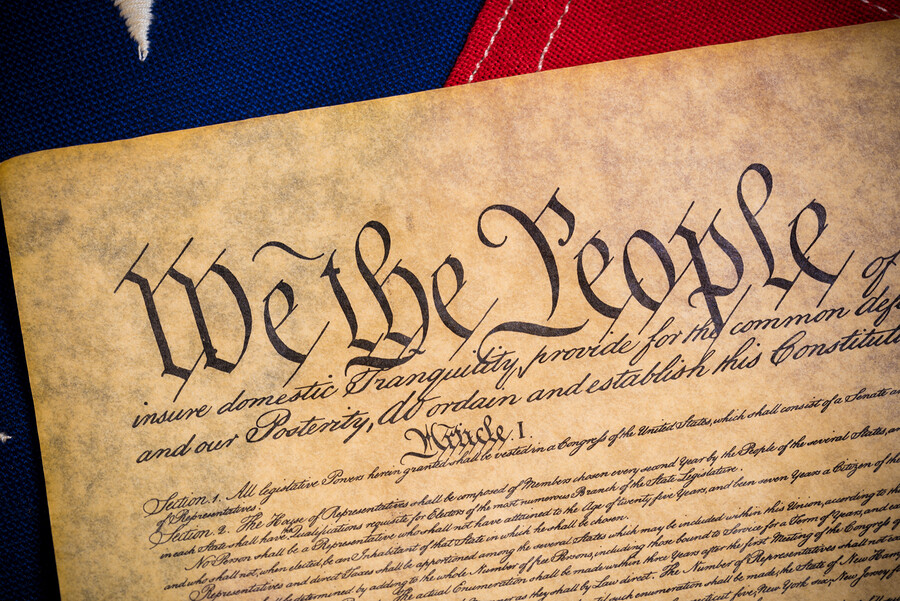 We the People of
insure domestic Tranquility, provide for the common def
and our Posterity, do ordain and establish this Constituti
Article I.
Section. 1. All legislative Powers herein granted shall be vested in a Congress of the United States, which shall consist of a Senate a
of Representatives.
Section. 2. The House of Representatives shall be composed of Members chosen every second Year by the People of the several States, an
in each State shall have the Qualifications requisite for Electors of the most numerous Branch of the State Legislature.
No Person shall be a Representative who shall not have attained to the Age of twenty five Years, and been seven Years a Citizen of the
and who shall not, when elected, be an Inhabitant of that State in which he shall be chosen.
Representatives and direct Taxes shall be apportioned among the several States which may be included within this Union, according to th
shall be determined by adding to the whole Number of free Persons, including those bound to Service for a Term of Years, and e
The actual Enumeration shall be made within three Years after the first Meeting of the Congress of
as they shall by Law direct. The Number of Representatives shall not
such enumeration shall be made, the State of New Hamp
necticut five, New York six, New Jersey f